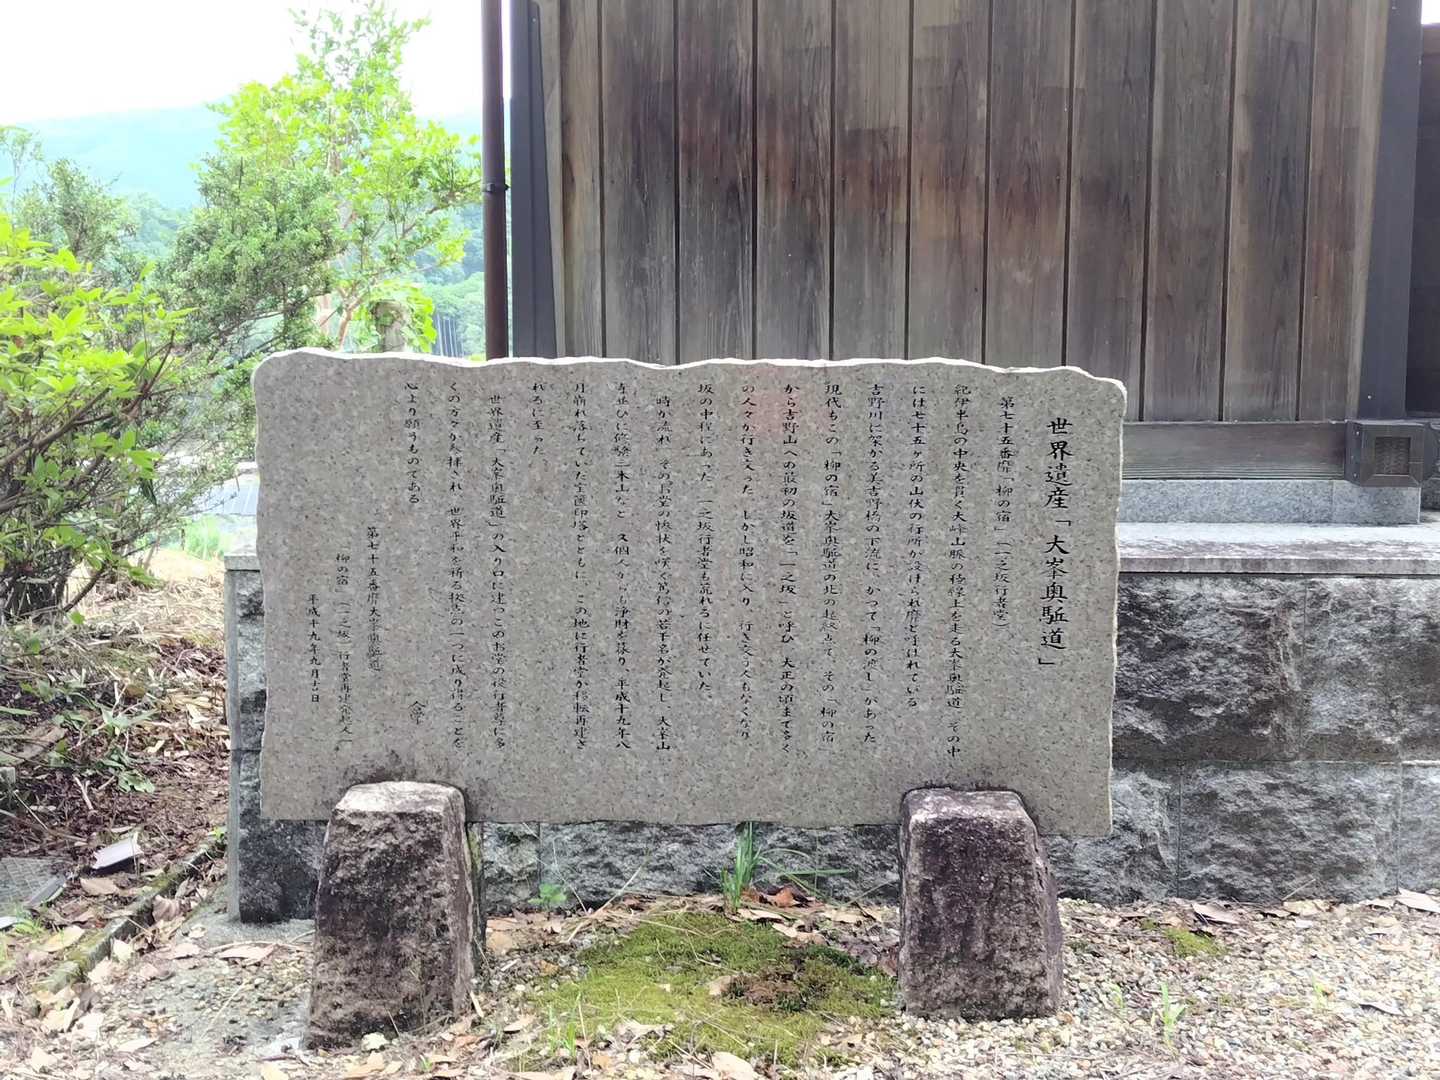 世界遺産「大峯奥駈道」
第七十五番靡「柳の宿」（一之坂行者堂）
紀伊半島の中央を貫く大峰山脈の稜線上を走る大峯奥駈道、その中
には七十五ヶ所の山伏の行所が設けられ靡と呼ばれている。
吉野川に架かる美吉野橋の下流に、かつて「柳の渡し」があった。
現代もこの「柳の宿」大峯奥駈道の北の起終点で、その「柳の宿」
から吉野山への最初の坂道を「一之坂」と呼び、大正の頃まで多く
の人々が行き交った。しかし昭和に入り、行き交う人もなくなり、
坂の中程にあった、一之坂行者堂も荒れるに任せていた。
時が流れ、その お堂の惨状を嘆く篤信の若干名が発起し、大峯山
寺並びに修験三本山など、又個人からも浄財を募り、平成十九年八
月崩れ落ちていた宝篋印塔とともに、この地に行者堂が移転再建さ
れるに至った。
世界遺産「大峯奥駈道」の入り口に建つこのお堂の役行者尊に多
くの方々が参拝され、世界平和を祈る拠点の一つに成り得ることを
心より願うものである。
合掌
第七十五番靡大峯奥駈道
「柳の宿」（一之坂）行者堂再建発起人一同
平成十九年九月吉日